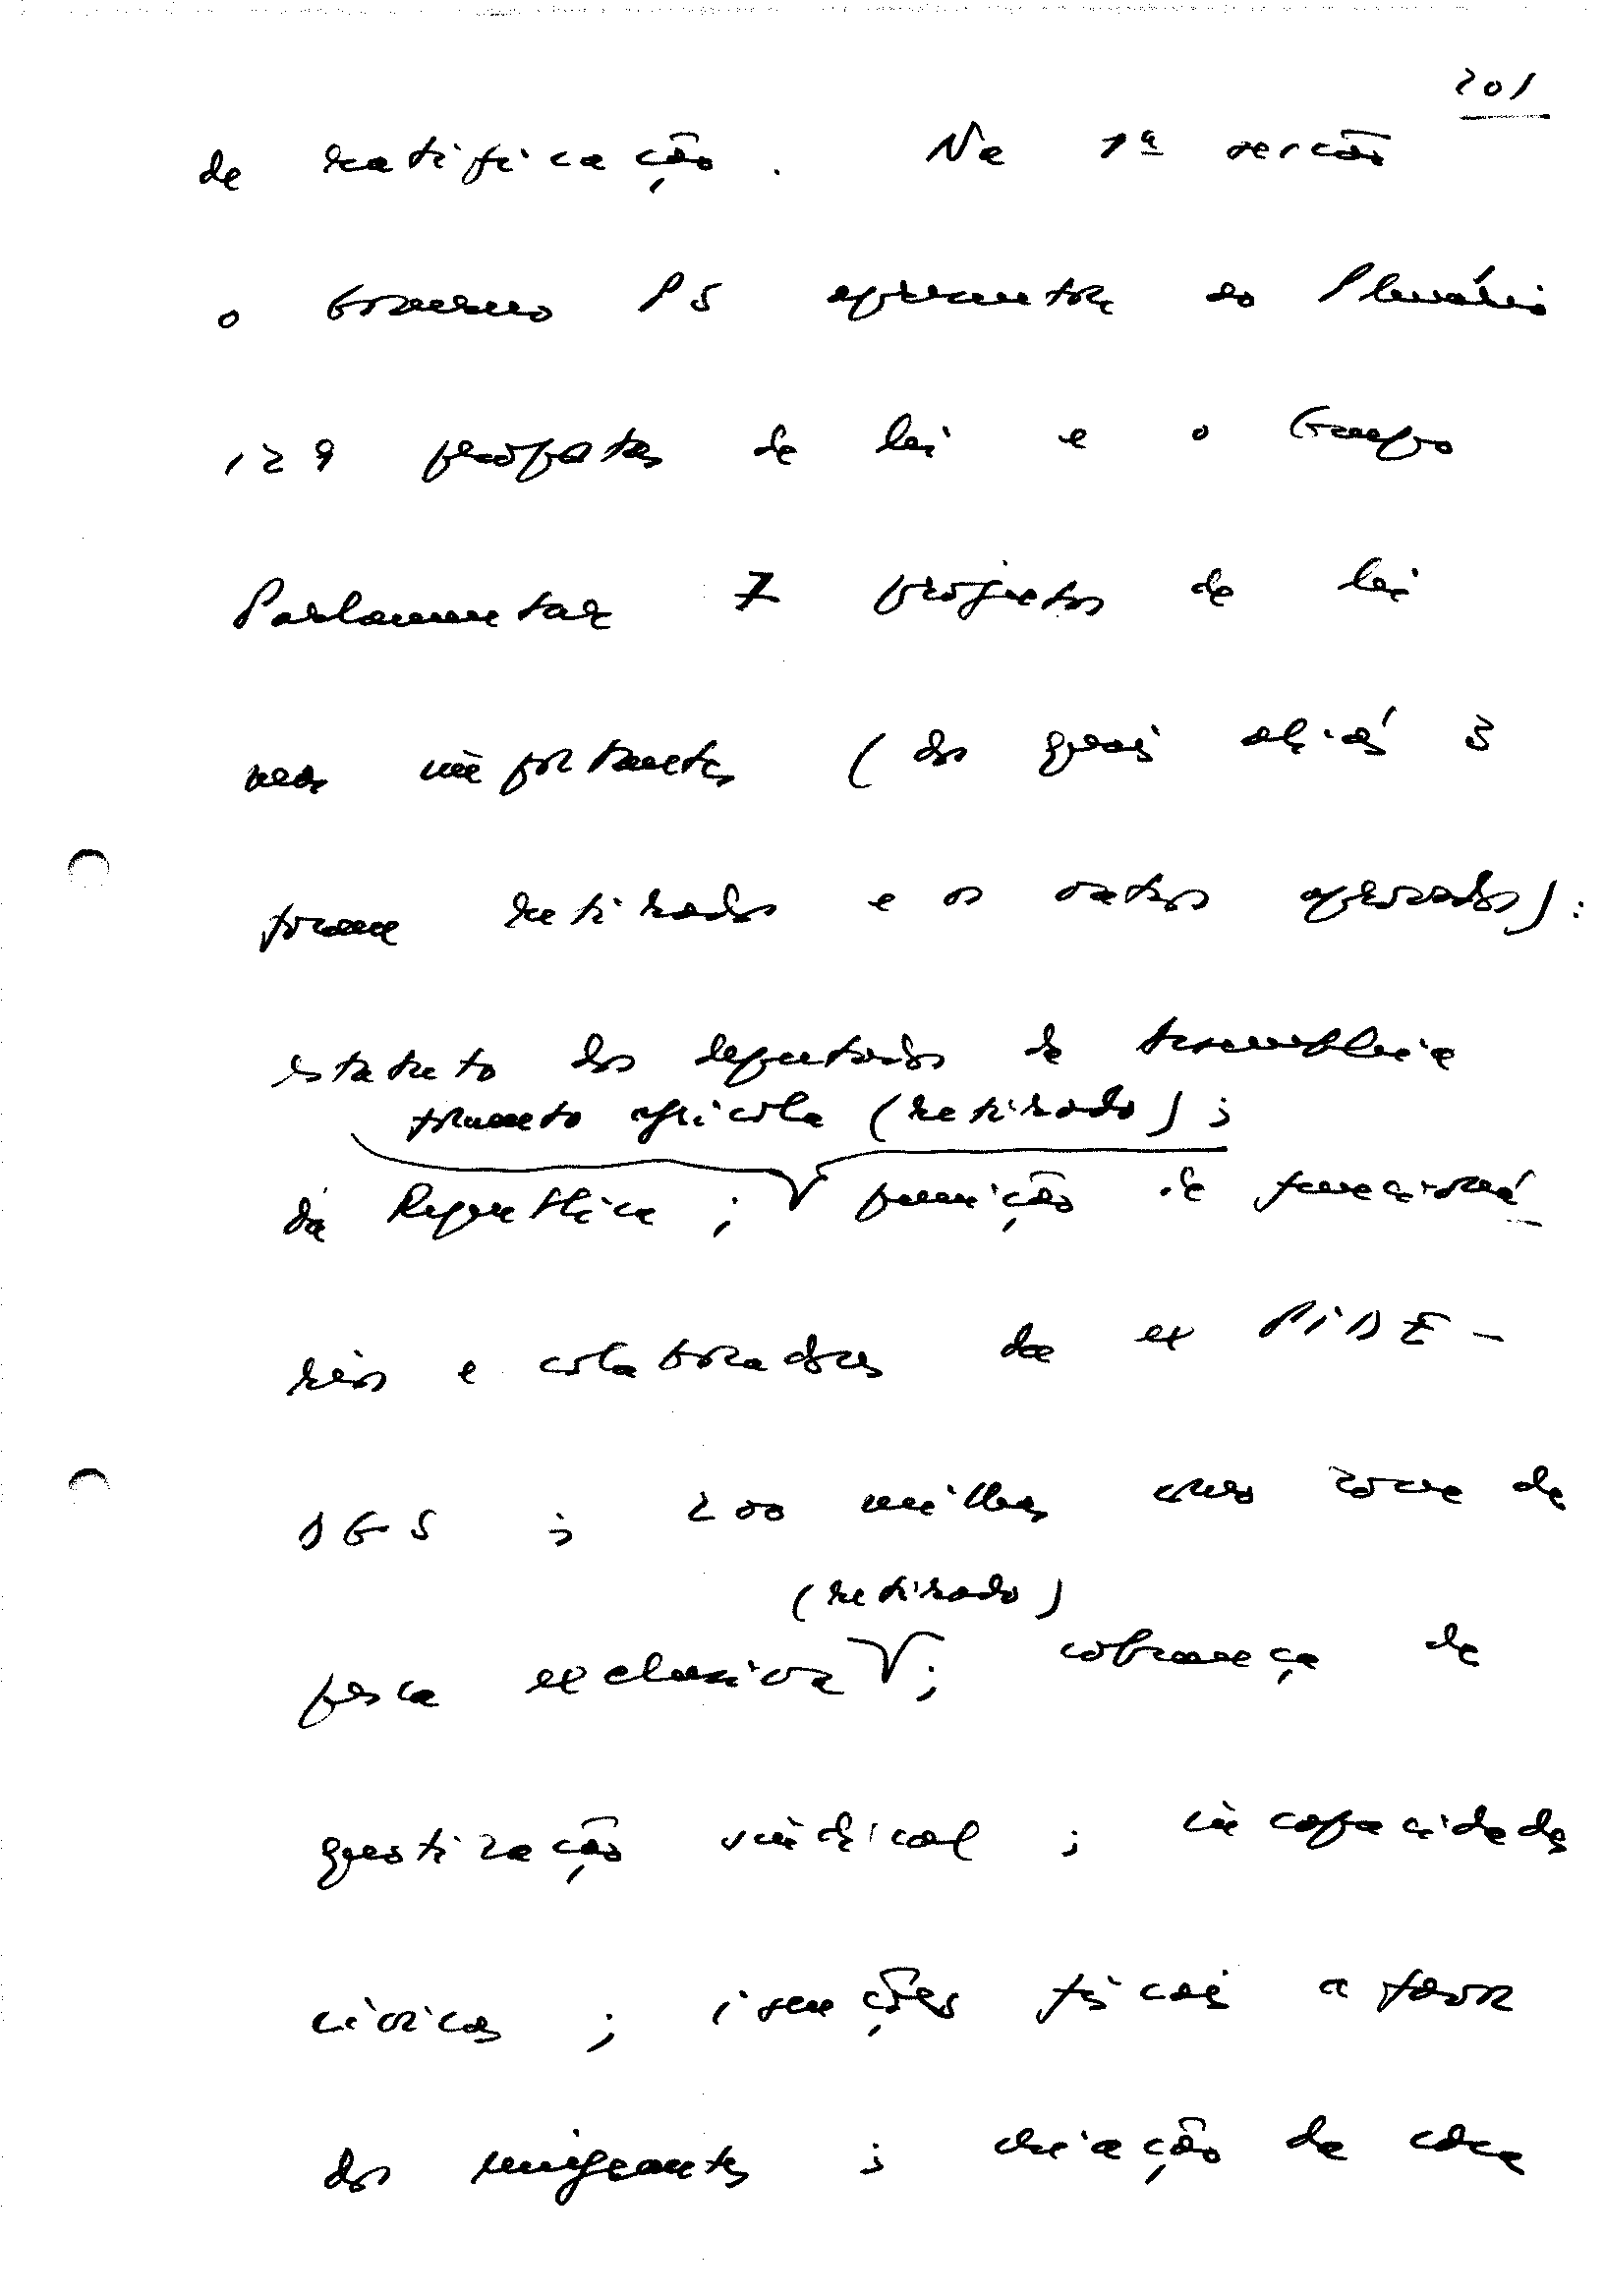 201
de ratificação. Na 1ª sessão
o Governo PS apresentou ao Plenário
129 propostas de lei e o Grupo
Parlamentar 7 projectos de lei
mas importantes (dos quais aliás 3
foram retirados e os outros aprovados):
estatuto dos deputados da Assembleia
fomento agrícola (retirado);
da República; punição de funcioná-
rios e colaboradores da ex PIDE-
DGS; 200 milhas como zona de
(retirado)
pesca exclusiva; cobrança de
quotização sindical; incapacidades
cívicas; isenções fiscais a favor
dos emigrantes; criação da